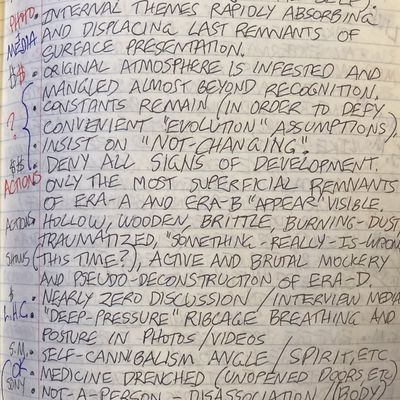 PHOTO. • INTERNAL THEMES RAPIDLY ABSORBING
& AND DISPLACING LAST REMNANTS OF
MEDIA SURFACE PRESENTATION.
$$ • ORIGINAL ATMOSPHERE IS INFESTED AND
MANGLED ALMOST BEYOND RECOGNITION.
• CONSTANTS REMAIN (IN ORDER TO DEFY
? CONVENIENT "EVOLUTION" ASSUMPTIONS).
• INSIST ON "NOT-CHANGING".
$$ • DENY ALL SIGNS OF DEVELOPMENT.
ACTIONS ONLY THE MOST SUPERFICIAL REMNANTS
OF ERA-A AND ERA-B "APPEAR" VISIBLE.
ACTIONS • HOLLOW, WOODEN, BRITTLE, BURNING-DUST,
TRAUMATIZED, "SOMETHING-REALLY-IS-WRONG
SHOWS (THIS TIME?), ACTIVE AND BRUTAL MOCKERY
AND PSEUDO-DECONSTRUCTION OF ERA-D.
$ • NEARLY ZERO DISCUSSION / INTERVIEW MEDIA
L.H.C. • "DEEP-PRESSURE" RIBCAGE BREATHING AND
POSTURE IN PHOTOS/VIDEOS
S.M. • SELF-CANNIBALISM ANGLE / SPIRIT, ETC
OF • MEDICINE DRENCHED (UNOPENED DOORS, ETC)
SONY • NOT-A-PERSON - DISASSOCIATION / BODY)